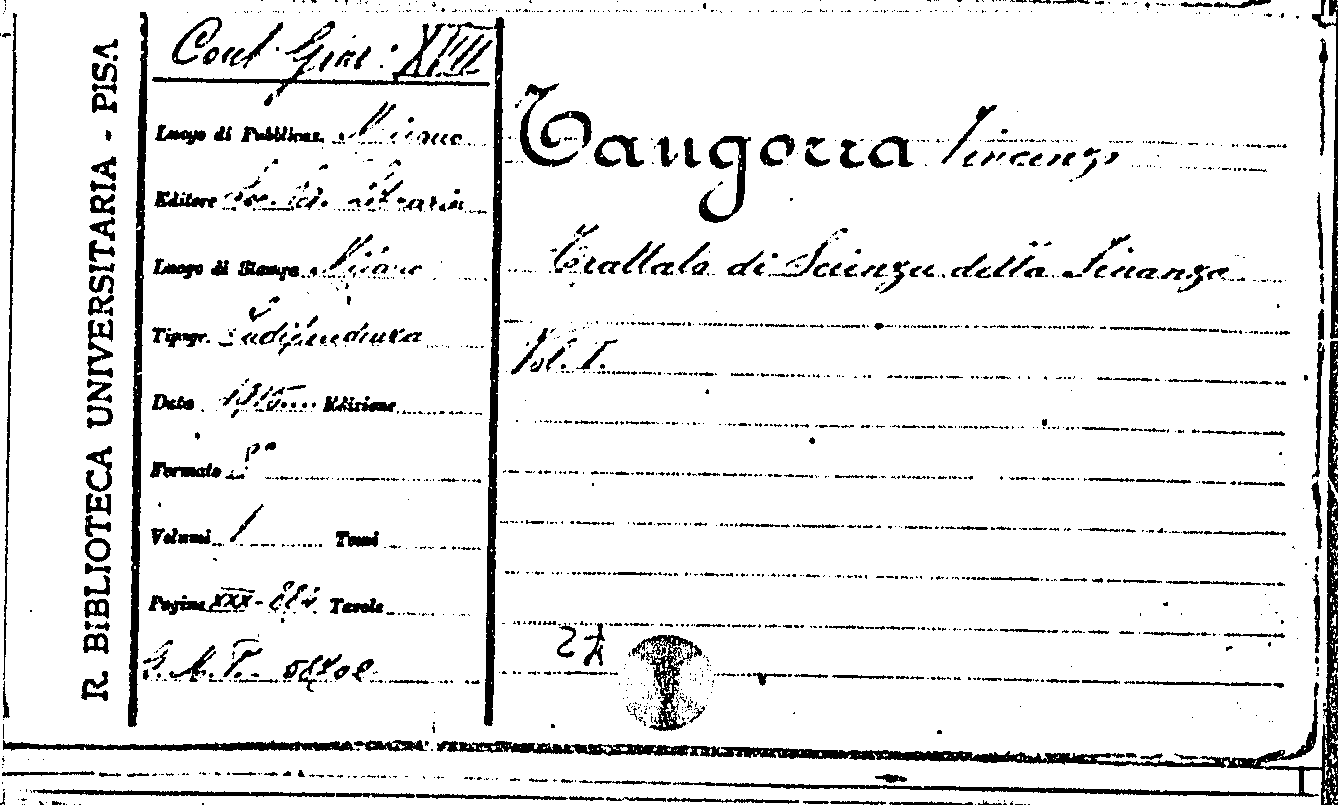 R. BIBLIOTECA UNIVERSITARIA - PISA
Cont. Giur: XVIII
Luogo di Pubblicaz. Milano
Editore Soc. Ed. Libraria
Luogo di Stampa Milano
Tipogr. Indipendenza
Data 1915 Edizione
Formato 8°
Volumi 1 Tomi
Pagine XXX- Tavole
Tangorra Vincenzo
Trattato di Scienza della Finanza
Vol. I.